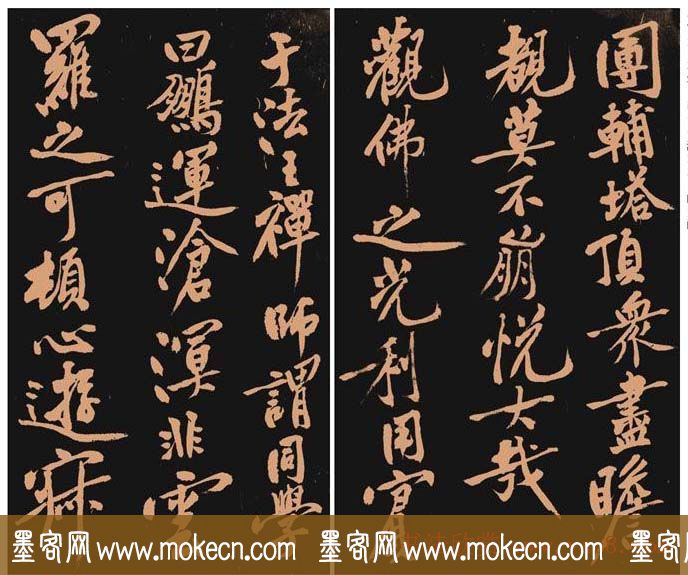 團輔塔頂衆盡瞻
覩莫不崩悅大哉
觀佛之光利用賓
于法王禪師謂同學
曰鵬運滄溟非雲
羅之可頓心遊寂
墨客网 www.mokecn.com 墨客网 www.mokecn.com